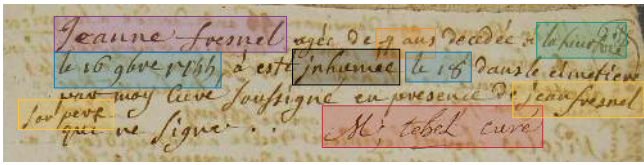 Jeanne fresnel agée de 4 ans decedée a
le 16 9bre 1744 a esté jnhumée le 18 dans le cimetiere
par moy curé soussigné en presence de jean fresnel
son pere qui ne signe . .
M. tebel curé